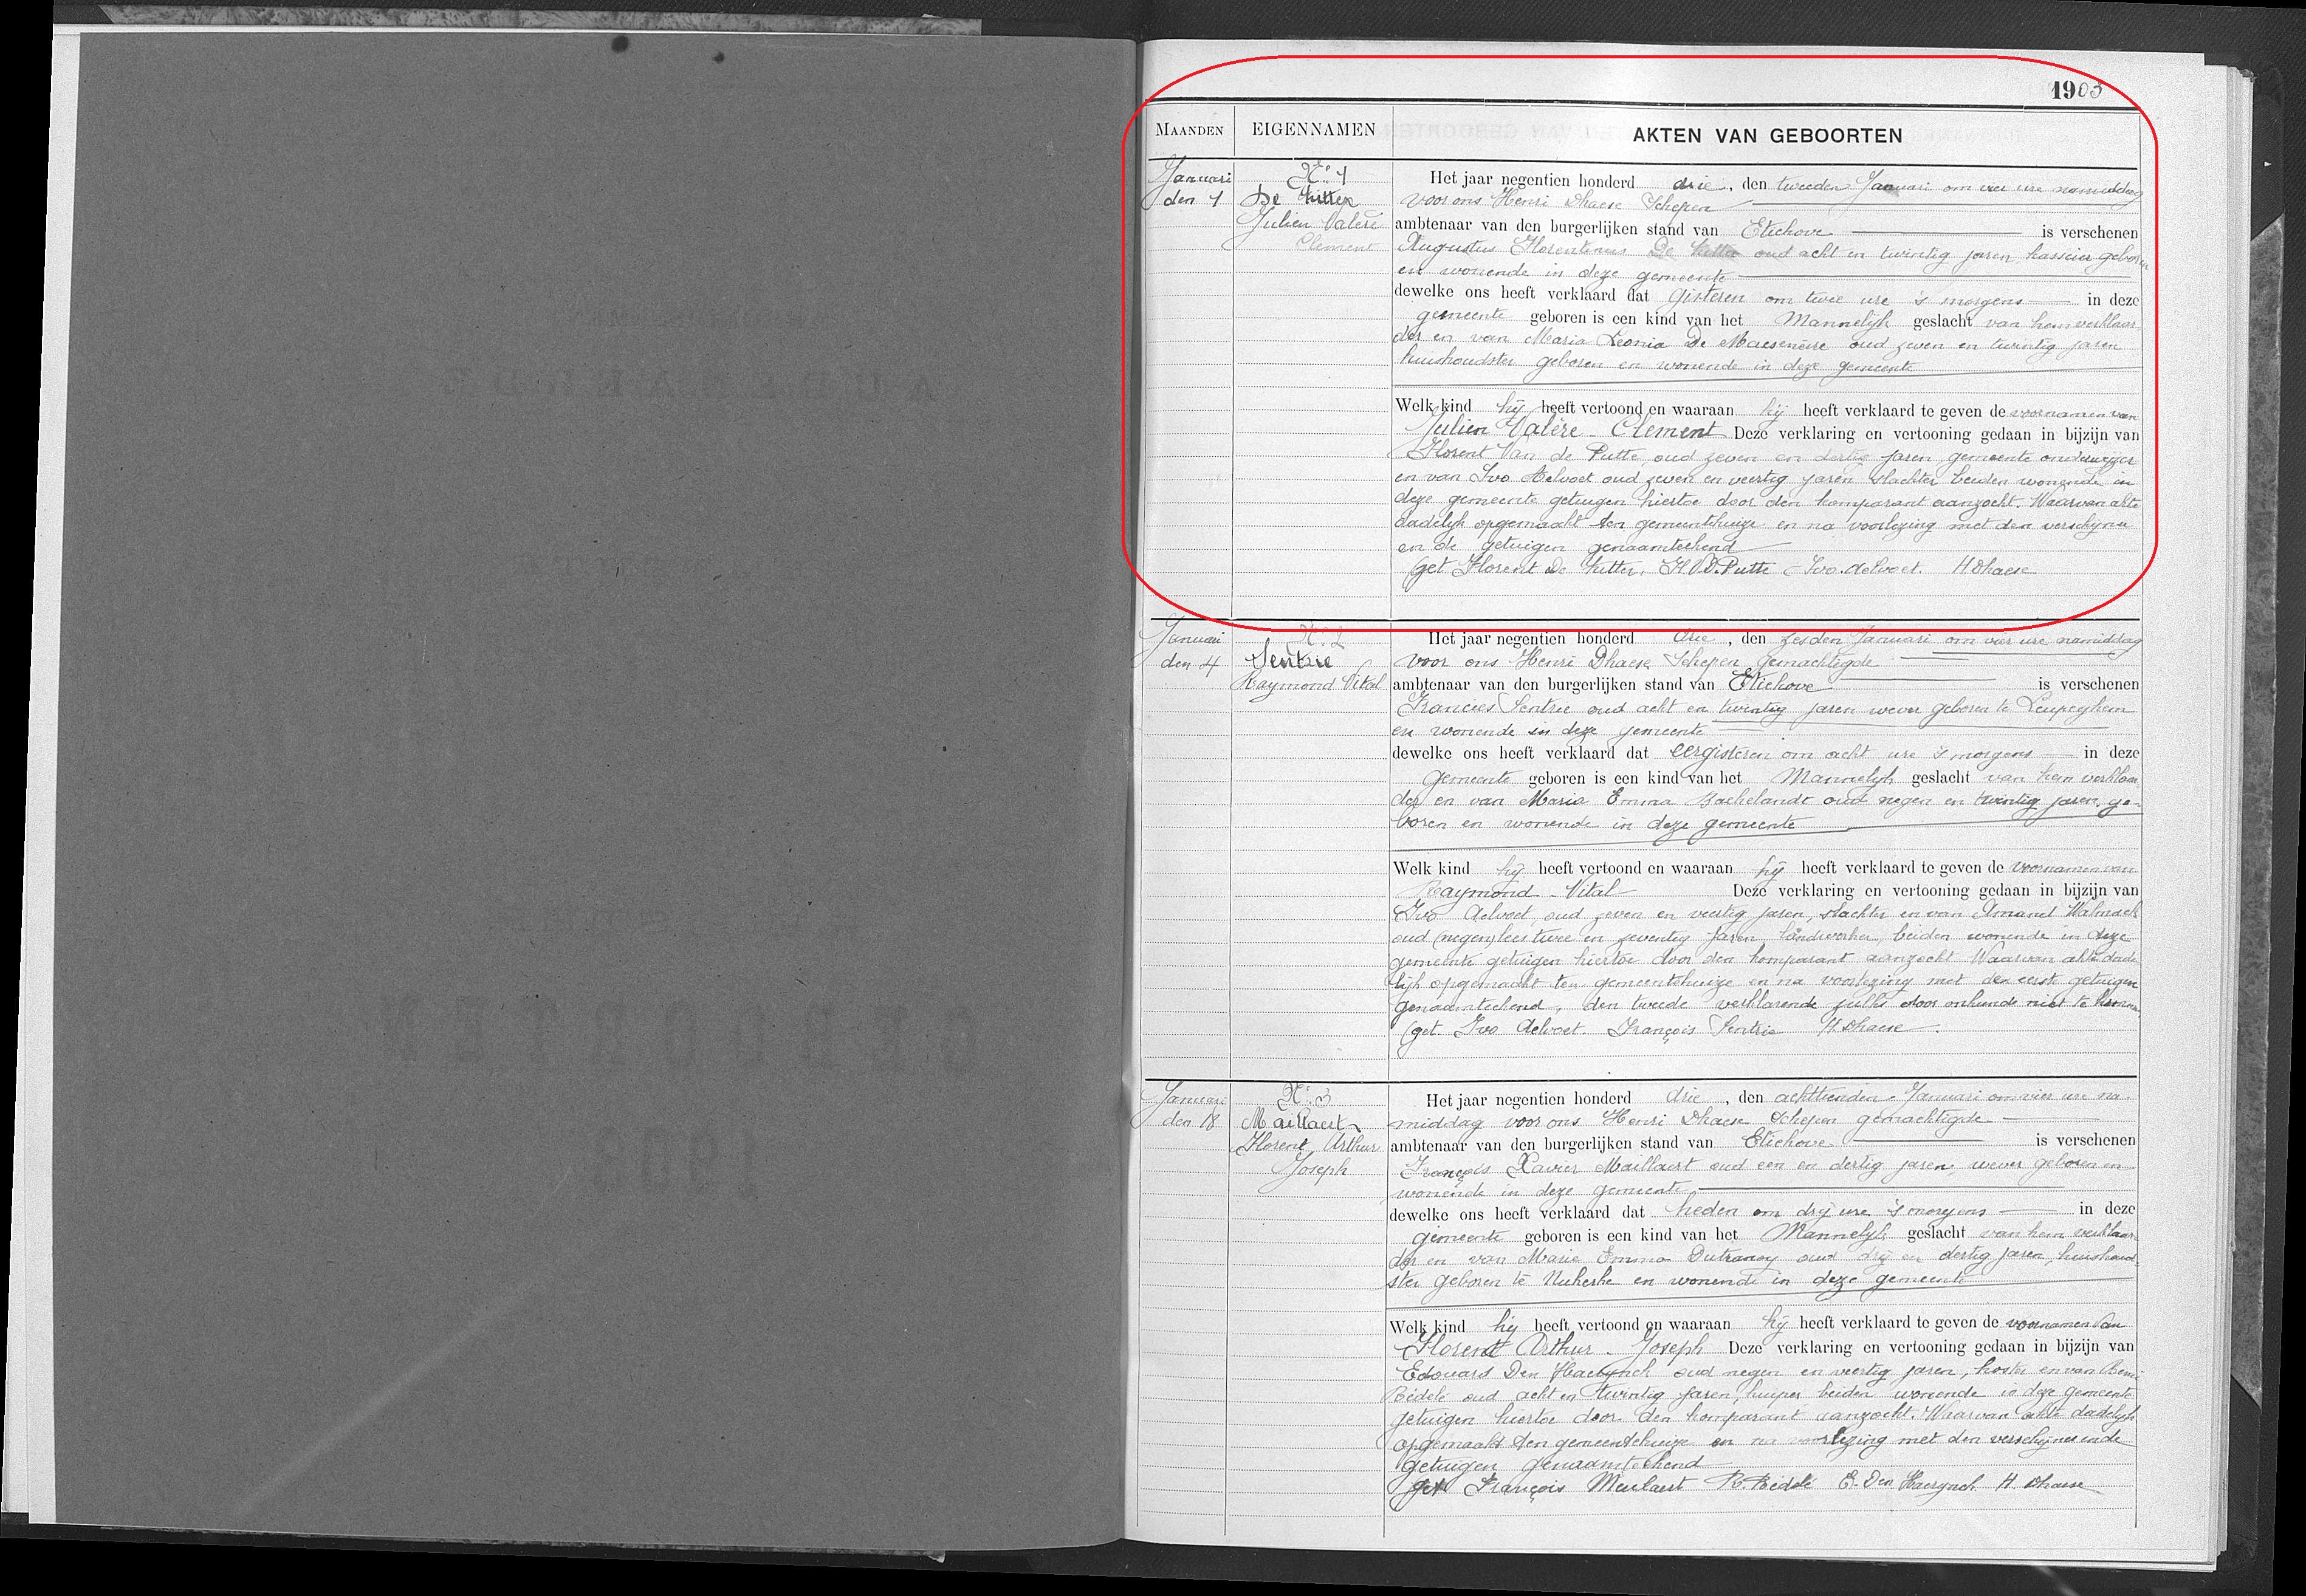 1903
MAANDEN EIGENNAMEN AKTEN VAN GEBOORTEN
Januari
den 1
N.° 1
De Rutter
Julien Valère
Clement
Het jaar negentien honderd drie, den tweeden Januari om vier ure namiddag
voor ons Henri Dhaese Schepen
ambtenaar van den burgerlijken stand van Etichove is verschenen
Augustus Florentinus De oud acht en twintig jaren kasseier geboren
en wonende in deze gemeente
dewelke ons heeft verklaard dat gisteren om twee ure 's morgens in deze
gemeente geboren is een kind van het Mannelijk geslacht van hem verklaar-
der en van Maria Leonia De Maeseneire oud zeven en twintig jaren
huishoudster geboren en wonende in deze gemeente
Welk kind hij heeft vertoond en waaraan hij heeft verklaard te geven de voornamen van
Julien Valère Clement Deze verklaring en vertooning gedaan in bijzijn van
Florent Van de Putte, oud zeven en dertig jaren gemeente onderwijzer
en van Ivo Aelvoet oud zeven en veertig jaren slachter beiden wonende in
deze gemeente getuigen hiertoe door den komparant aanzocht. Waarvan akte
dadelijk opgemaakt ten gemeentehuize en na voorlezing met den verschijner
en de getuigen genaamteekend
(get Florent De Rutter, F. V. D. Putte Ivo Aelvoet. H Dhaese
Januari
den 4
N.° 2
Sentrie
Raymond Vital
Het jaar negentien honderd drie, den zesden Januari om vier ure namiddag
voor ons Henri Dhaese Schepen gemachtigde
ambtenaar van den burgerlijken stand van Etichove is verschenen
Francies Sentrie oud acht en twintig jaren wever geboren te Leupeghem
en wonende in deze gemeente
dewelke ons heeft verklaard dat eergisteren om acht ure 's morgens in deze
gemeente geboren is een kind van het Mannelijk geslacht van hem verklaar
der en van Maria Emma Bachelandt oud negen en twintig jaren, ge-
boren en wonende in deze gemeente
Welk kind hij heeft vertoond en waaraan hij heeft verklaard te geven de voornamen van
Raymond - Vital Deze verklaring en vertooning gedaan in bijzijn van
Ivo Aelvoet, oud zeven en veertig jaren, slachter en van Amand
oud (negen) lees twee en zeventig jaren landwerker, beiden wonende in deze
gemeente getuigen hiertoe door den komparant aanzocht Waarvan akte dade
lijk opgemaakt ten gemeentehuize en na voorlezing met den eerst getuigen
genaamteekend, den tweede verklarende zulks door onkunde niet te kennen
(get. Ivo Aelvoet. François Sentrie H. Dhaese
Januari
den 18
N.° 3
Maillaert
Florent Arthur
Joseph
Het jaar negentien honderd drie, den achttienden Januari om vier ure na-
middag voor ons Henri Dhaese Schepen gemachtigde
ambtenaar van den burgerlijken stand van Etichove is verschenen
François Xavier Maillaert oud een en dertig jaren, wever geboren en
wonende in deze gemeente
dewelke ons heeft verklaard dat heden om drij ure 's morgens in deze
gemeente geboren is een kind van het Mannelijk geslacht van hem verklaar-
der en van Marie Emma Dutranoy oud drij en dertig jaren, huishoud-
ster geboren te Nukerke en wonende in deze gemeente
Welk kind hij heeft vertoond en waaraan hij heeft verklaard te geven de voornamen van
Florent Arthur - Joseph Deze verklaring en vertooning gedaan in bijzijn van
Edouard Den Haerynck oud negen en veertig jaren, koster en van Remi
Bedelé oud acht en twintig jaren, kuiper beiden wonende in deze gemeente
getuigen hiertoe door den komparant aanzocht. Waarvan akte dadelijk
opgemaakt ten gemeentehuize en na voorlezing met den verschijner en de
getuigen genaamteekend
get François Meulaert R. Bedelé E. Den Haerynck H. Dhaese